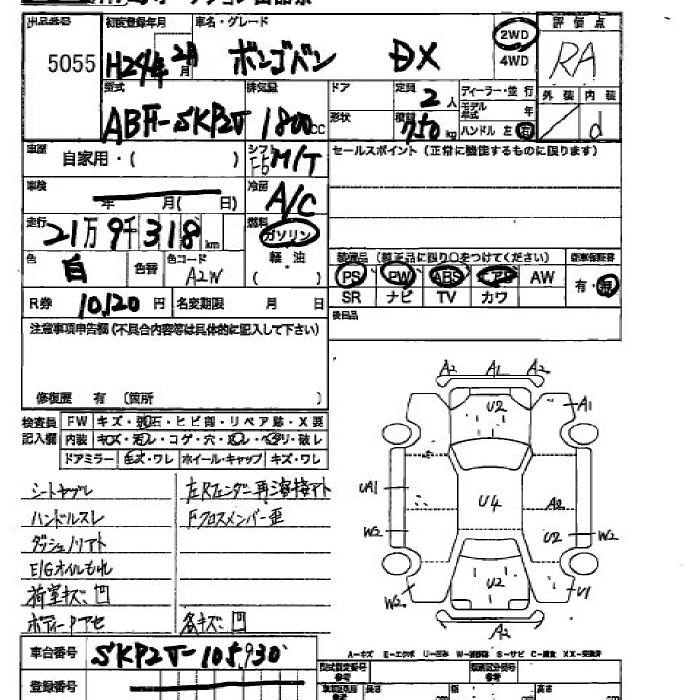 出品番号 初度登録年月 車名・グレード 評価点
5055 H24年2月 ボンゴバン DX 2WD 4WD RA
型式 排気量 ドア 定員 ディーラー・並行 外装 内装
ABF-SKP2V 1800cc 2人 モデル年式 年
形状 積載 750kg ハンドル 左 右 d
車歴 自家用・( ) シフト F5 M/T セールスポイント(正常に機能するものに限ります)
車検 年 月( 日) 冷房 A/C
走行 21万9千318km 燃料 ガソリン
色 白 色替 色コード A2W 軽油 ( )
装備品(純正品に限り○をつけてください) 新車保証書
PS PW ABS エアB AW 有・無
SR ナビ TV カワ
R券 10,120円 名変期限 月 日 後日品
注意事項申告欄(不具合内容等は具体的に記入して下さい)
修復歴 有 〔箇所 〕
検査員記入欄 FW キズ・飛石・ヒビ割・リペア跡・X要
内装 キズ・汚レ・コゲ・穴・スレ・ヘタリ・破レ
ドアミラー キズ・ワレ ホイール・キャップ キズ・ワレ
シートヤブレ 左Rフェンダー再溶接アト
ハンドルスレ Fクロスメンバー歪
ダッシュノリアト
E/Gオイルもれ
荷室キズ、凹
ボディーアセ 各キズ、凹
A2 A1 A2
U2 A1
UA1 U4 A2
W2 U2 W2
W2 U2 U1
A2
車台番号 SKP2V-105930
A-キズ E-エクボ U-凹み W-波修跡 S-サビ C-腐食 XX-交換済
登録番号 型式指定番号 類別区分番号
参考 参考
長さ 幅 高さ